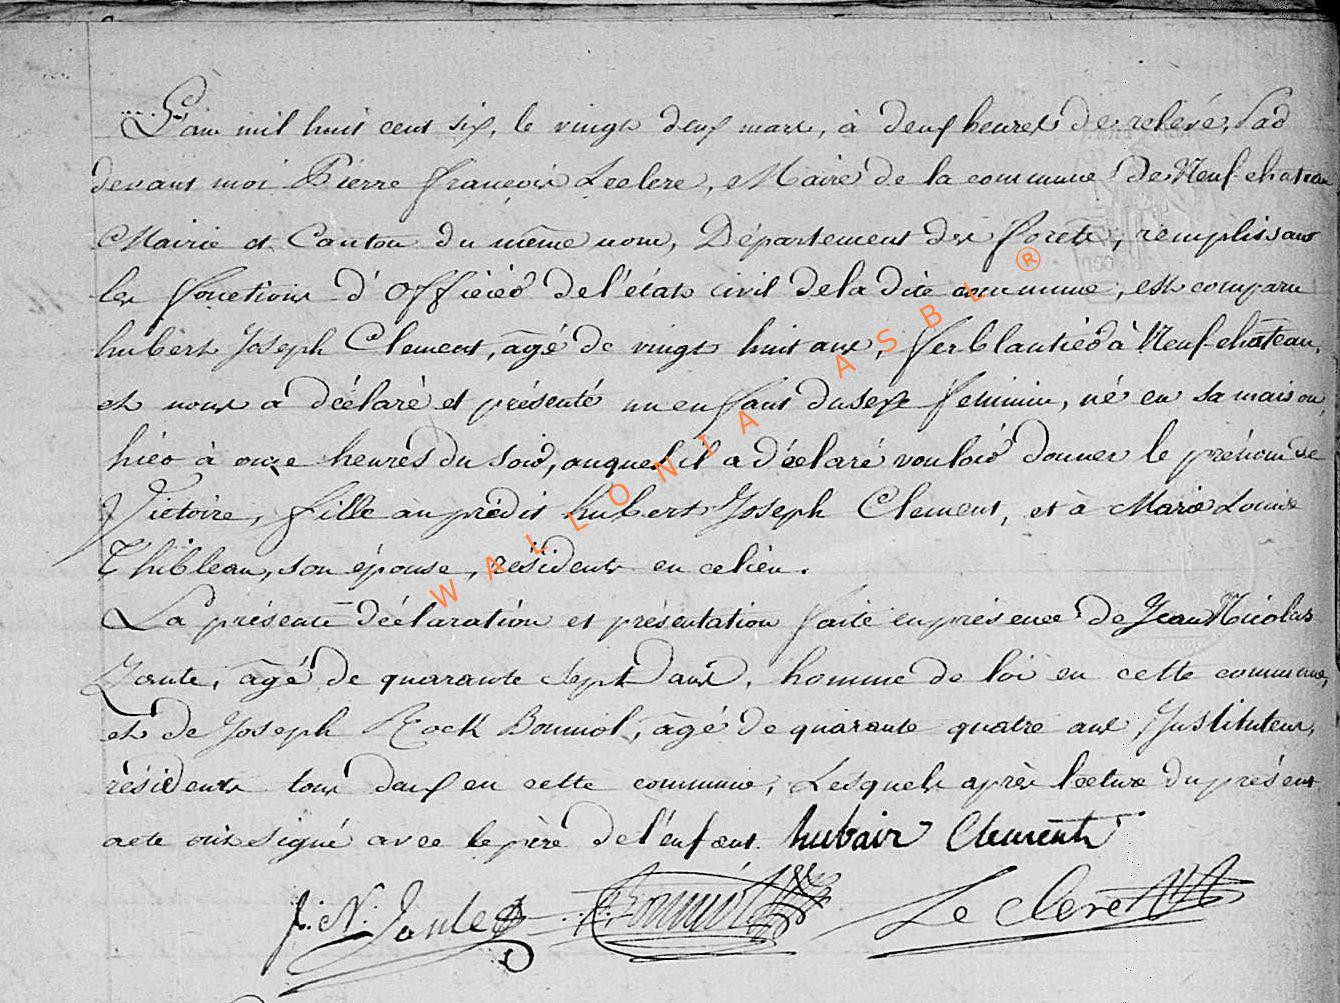 L'an mil huit cent six, le vingt deux mars, à deux heures de relévé, Pad
devant moi Pierre François Leclere, Maire de la commune de Neufchateau
Mairie et Canton du même nom, Département des forets, remplissant
les fonctions d'officier de l'état civil de la dite commune, est comparu
hubert Joseph Clement, agé de vingt huit ans, ferblantier à Neufchâteau,
et nous a déclaré et présenté un enfant du sexe feminin, né en sa maison,
hier à onze heures du soir, auquel il a déclaré vouloir donner le prénom de
Victoire, fille au prédit hubert Joseph Clement, et à Marie Louise
Thibleau, son épouse, résidents en ce lieu.
La présente déclaration et présentation faite en présence de Jean Nicolas
Jante, agé de quarante sept ans, homme de loi en cette commune,
et de Joseph Rock Bouniol, agé de quarante quatre ans, Instituteur,
résidents tous deux en cette commune, Lesquels après lecture du présent
acte ont signé avec le père de l'enfant. hubair Clement
J. N. Jante Le clere
WALLONIA ASBL ®